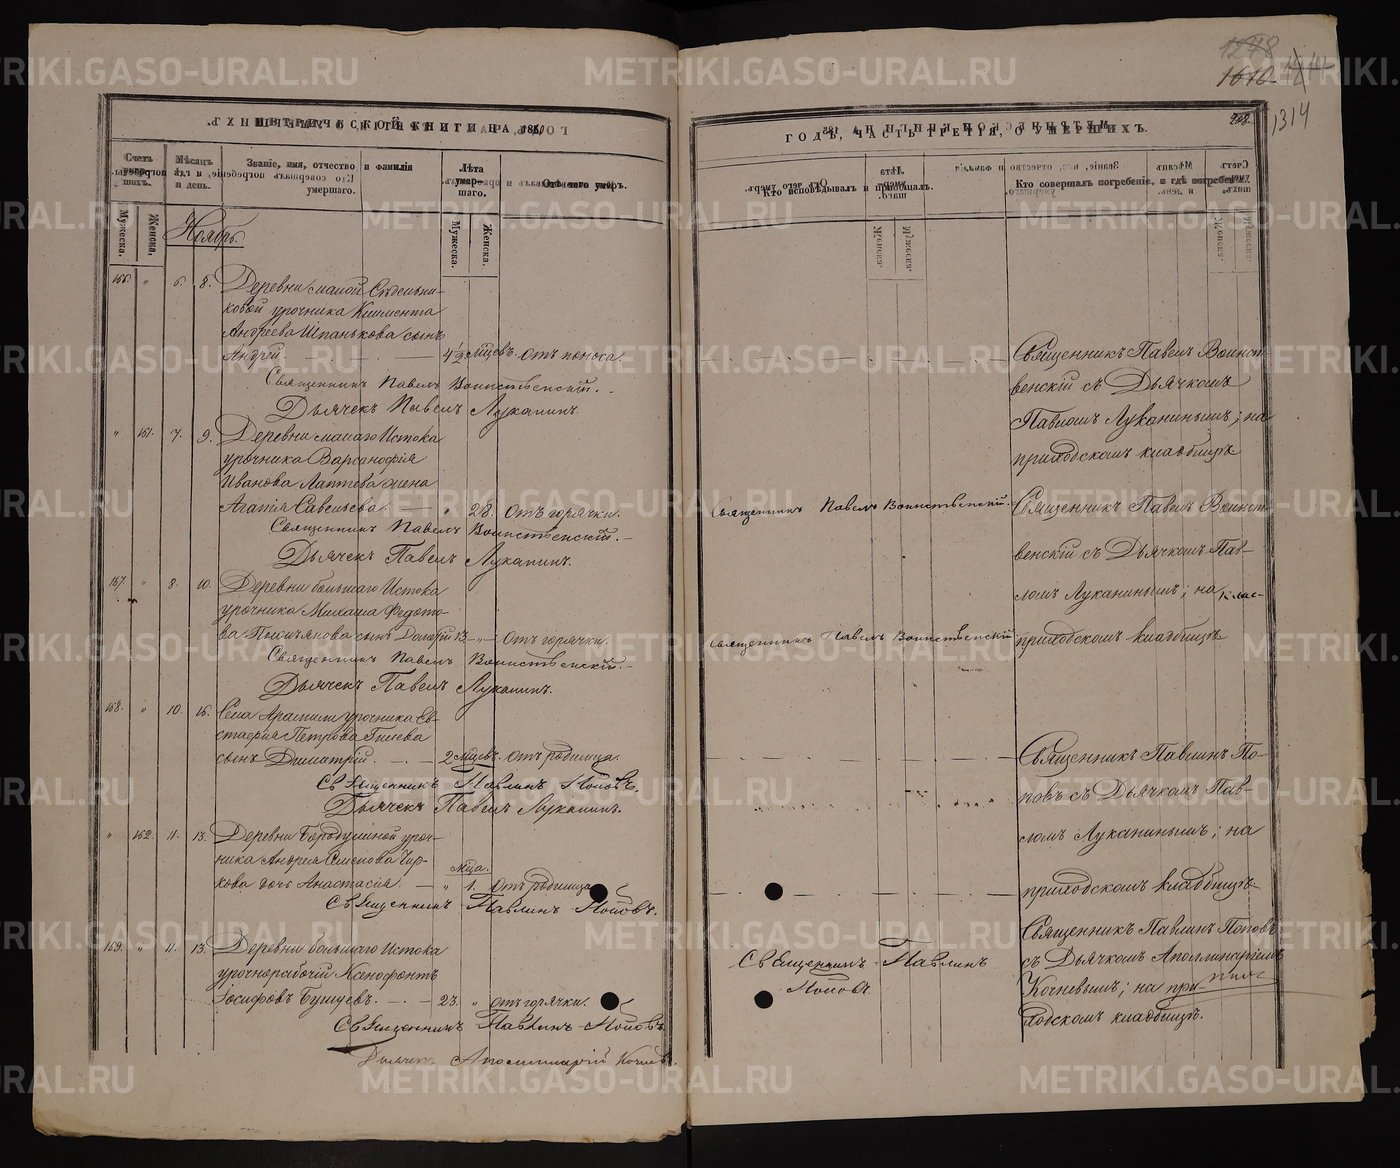 1278
1616
1314
МЕТРИЧЕСКОЙ КНИГИ НА 1860
Счетъ умер-шихъ.
Мѣсяцъ и день.
Званіе, имя, отчество и фамилія умершаго.
Лѣта умер-шаго.
Отъ чего умеръ.
Мужеска.
Женска.
Мужеска.
Женска.
Ноябрь.
166. „ 6. 8. Деревни малой Сѣдельни-
ковой урочника Климента
Андреева Шпанькова сынъ
Андрей. 4½ мцевъ. отъ поноса.
Священникъ Павелъ Воинственскій.
Дьячекъ Павелъ Луканинъ.
„ 151. 7. 9. Деревни малаго Истока
урочника Варсанофія
Иванова Лаптева жена
Агапія Савельева. „ 28. отъ горячки.
Священникъ Павелъ Воинственскій.
Дьячекъ Павелъ Луканинъ.
167. „ 8. 10. Деревни большаго Истока
урочника Михаила Федото-
ва сынъ 13 „ Отъ горячки.
Священникъ Павелъ Воинственскій.
Дьячекъ Павелъ Луканинъ.
168. „ 10. Села Арамили урочника Ев-
стафія Петрова Гилева
сынъ Димитрій. 2 мцевъ. отъ родимца.
Священникъ Павлинъ Поповъ.
Дьячекъ Павелъ Луканинъ.
„ 152. 11. 13. Деревни Бородулиной уроч-
ника Андрея Семенова Чир-
кова дочь Анастасія. „ 1. мца. отъ родимца
Священникъ Павлинъ Поповъ.
169. „ 11. 13. Деревни большаго Истока
урочнорабочій Ксенофонтъ
Іосифовъ Бушуевъ. 23. „ отъ горячки.
Священникъ Павлинъ Поповъ
Дьячекъ Аполлинарій
ГОДЪ, ЧАСТЬ ТРЕТІЯ, О УМЕРШИХЪ.
Кто исповѣдывалъ и пріобщалъ.
Кто совершалъ погребеніе, и гдѣ погребены.
Священникъ Павелъ Воинст-
венскій съ Дьячкомъ
Павломъ Луканинымъ; на
приходскомъ кладбищѣ
Священникъ Павелъ Воинственскій
Священникъ Павелъ Воинст-
венскій съ Дьячкомъ Пав-
ломъ Луканинымъ; на
Священникъ Павелъ Воинственскій
приходскомъ кладбищѣ
Священникъ Павлинъ По-
повъ съ Дьячкомъ Пав-
ломъ Луканинымъ; на
приходскомъ кладбищѣ
Священникъ Павлинъ
Поповъ.
Священникъ Павлинъ Поповъ
съ Дьячкомъ Аполлинаріемъ
Кочневымъ; на при-
ходскомъ кладбищѣ.
METRIKI.GASO-URAL.RU